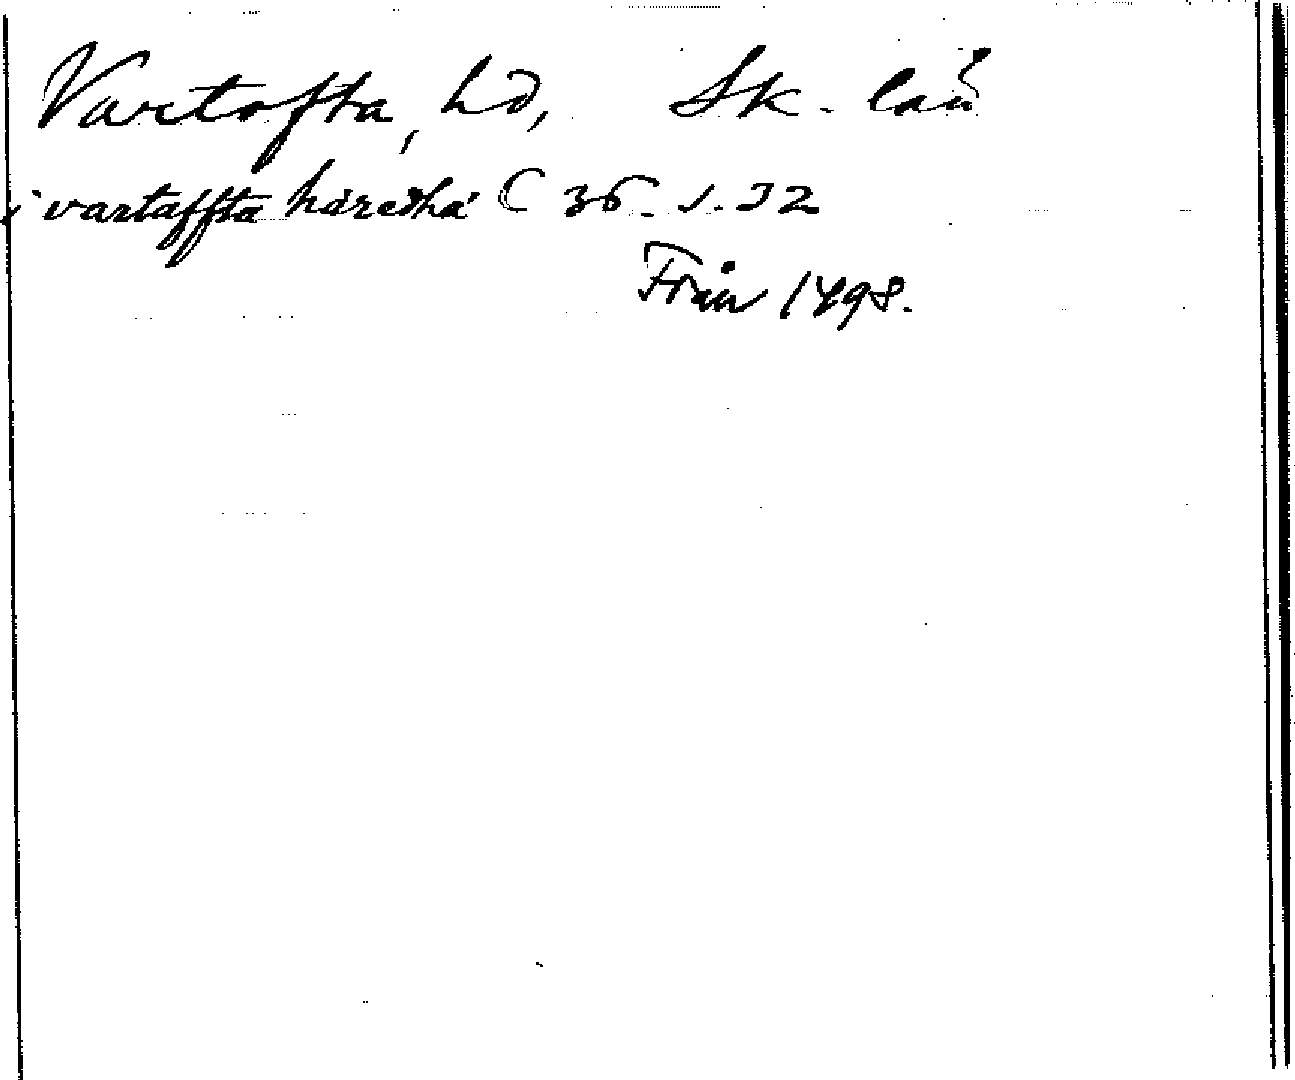 Vartofta, hd, Sk. län
i vartaffta häredhä C 36. s. 32
Från 1498.